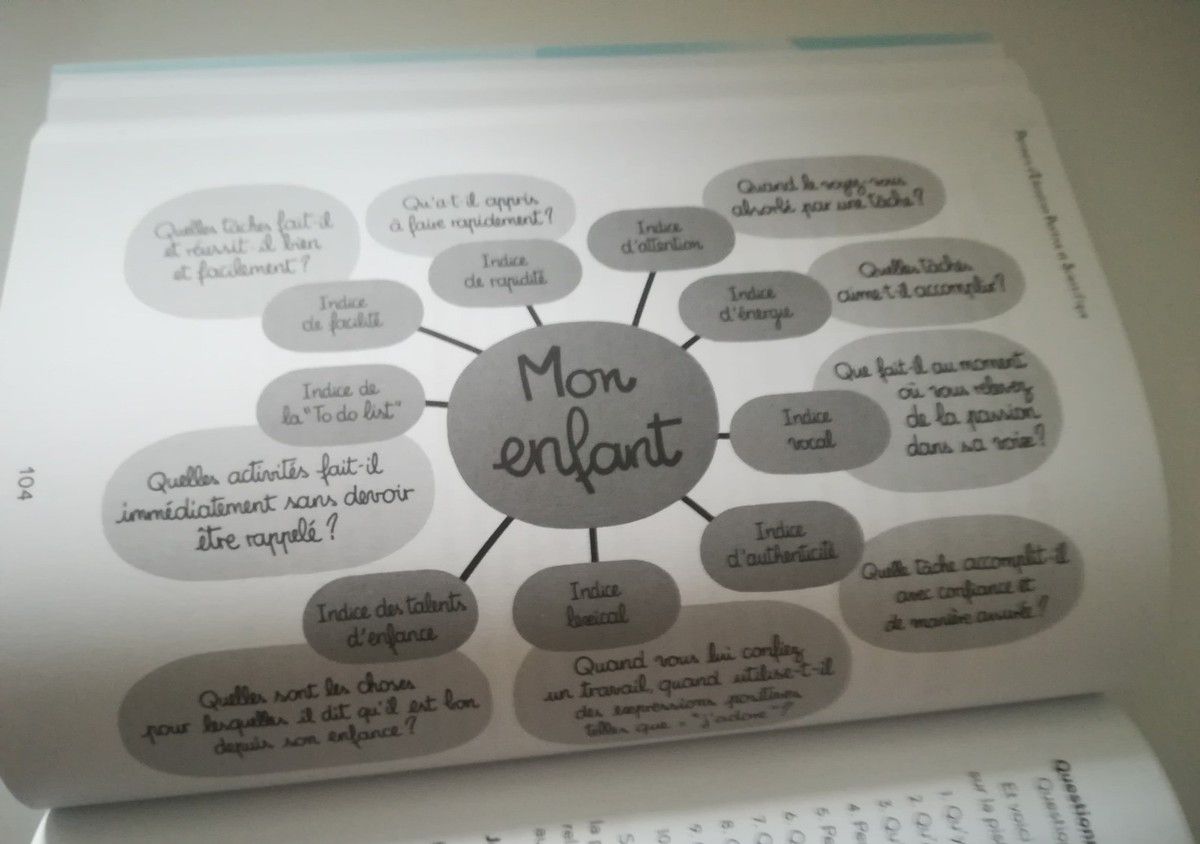 Quelles tâches fait-il
et réussit-il bien
et facilement ?
Indice
de facilité
Qu'a-t-il appris
à faire rapidement ?
Indice
de rapidité
Quand le voyez-vous
absorbé par une tâche ?
Indice
d'attention
Quelles tâches
aime-t-il accomplir ?
Indice
d'énergie
Mon
enfant
Indice de
la "To do list"
Quelles activités fait-il
immédiatement sans devoir
être rappelé ?
Que fait-il au moment
où vous relevez
de la passion
dans sa voix ?
Indice
vocal
Indice
d'authenticité
Quelle tâche accomplit-il
avec confiance et
de manière assurée ?
Indice des talents
d'enfance
Quelles sont les choses
pour lesquelles il dit qu'il est bon
depuis son enfance ?
Indice
lexical
Quand vous lui confiez
un travail, quand utilise-t-il
des expressions positives
telles que : "j'adore" ?
104
Question
Et voici
sur le